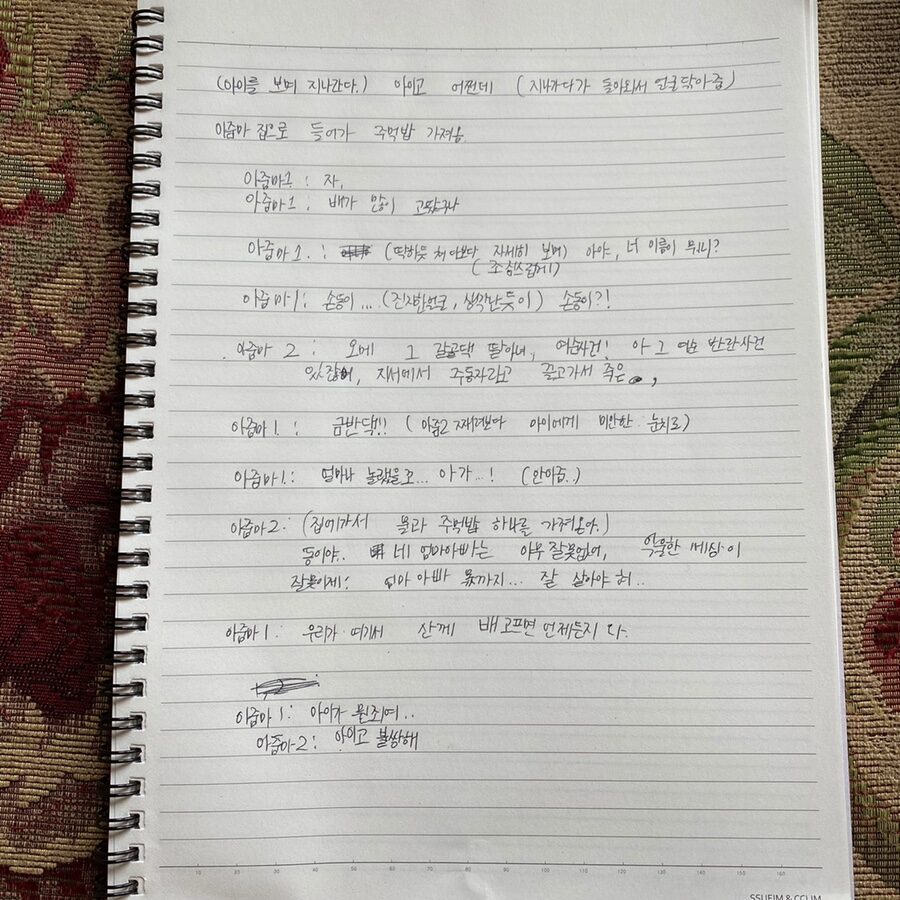 (아이를 보며 지나간다.) 아이고 어쩐데 (지나가다가 돌아와서 얼굴닦아줌)
아줌마 집으로 들어가 주먹밥 가져옴
아줌마1 : 자,
아줌마1 : 배가 많이 고팠구나
아줌마 1. : (딱하듯 쳐다보다 자세히 보며) 아야, 너 이름이 뭐니?
(조심스럽게)
아줌마1: 손동이 ... (긴가민가, 생각난듯이) 손동이?!
아줌마 2 : 오메 그 갈곡댁 딸아녀, 여순사건! 아 그 여순 반란사건
있잖여, 지서에서 주동자라고 끌고가서 죽은 ,
아줌마1. : 금반댁!! (아줌2 째려보다 아이에게 미안한 눈치로)
아줌마1: 얼마나 놀랬을꼬... 아가...! (안아줌.)
아줌마2: (집에가서 물과 주먹밥 하나를 가져온다.)
동이야.. 네 엄마아빠는 아무 잘못없어, 억울한 세상이
잘못이제! 엄마 아빠 몫까지... 잘 살아야 혀..
아줌마1: 우리가 여기서 산께 배고프면 언제든지 와.
아줌마 1: 아이가 뭔죄여..
아줌마2: 아이고 불쌍해
160
SSUEIM & CCLIM